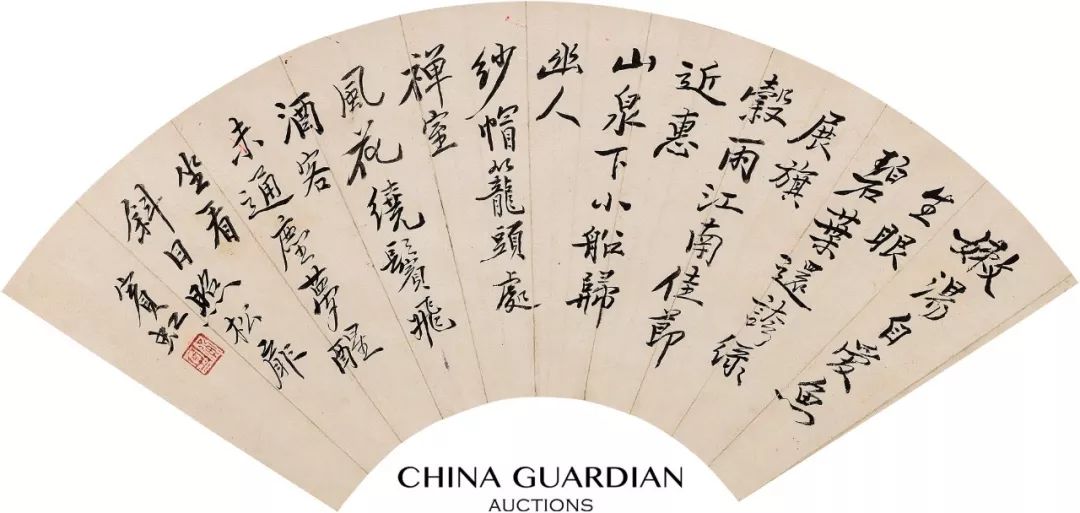 嫩湯自愛魚
生眼
碧葉還誇綠
展旗
穀雨江南佳節
近惠
山泉下小船歸
幽人
紗帽籠頭處
禅室
風花繞鬢飛
酒客
未通塵夢醒
坐看
斜日照松扉
賓虹
CHINA GUARDIAN
AUCTIONS